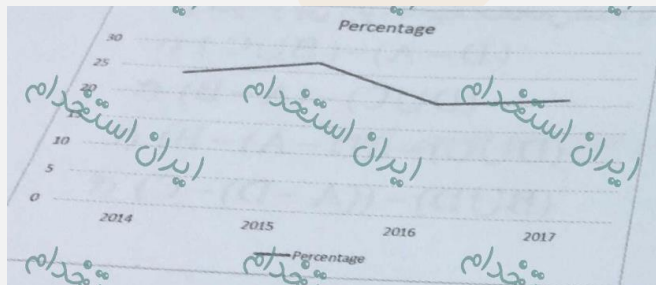 Percentage
30
25
20
15
10
5
0
2014 2015 2016 2017
Percentage
ایران استخدام ایران استخدام ایران استخدام
تخدام تخدام تخدام